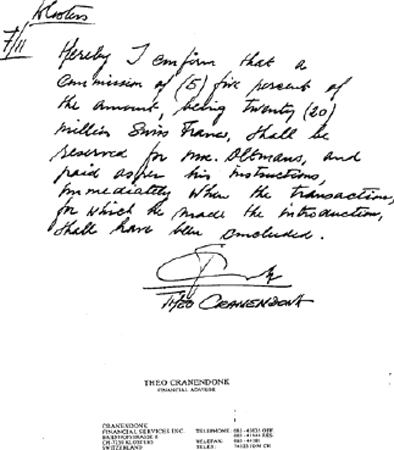 Klosters
7/11
Hereby I confirm that a
commission of (5) five percent of
the amount, being twenty (20)
million Swiss Francs, shall be
reserved for mr. Oltmans, and
paid as per his instructions,
immediately when the transaction,
for which he made the introduction,
shall have been concluded.
THEO CRANENDONK
THEO CRANENDONK
FINANCIAL ADVISOR
CRANENDONK
FINANCIAL SERVICES INC.
BAHNHOFSTRASSE 8
CH-7250 KLOSTERS
SWITZERLAND
TELEPHONE
TELEFAX:
TELEX: